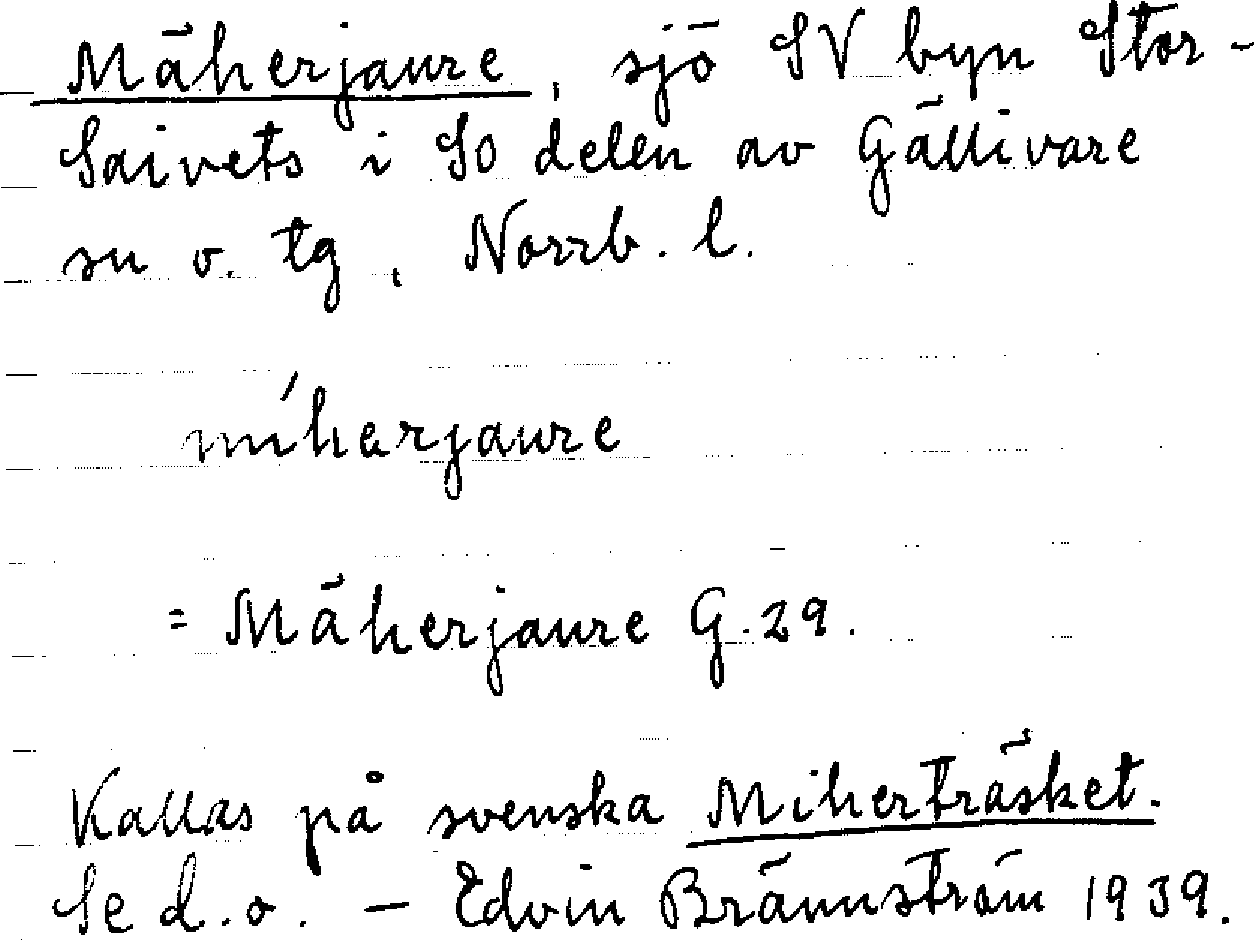 Mäherjaure, sjö SV byn Stor-
Saivets i SO delen av Gällivare
sn o. tg, Norrb. l.
míherjaure
= Mäherjaure G. 29.
Kallas på svenska Miherträsket.
Se d.o. — Edvin Brännström 1939.